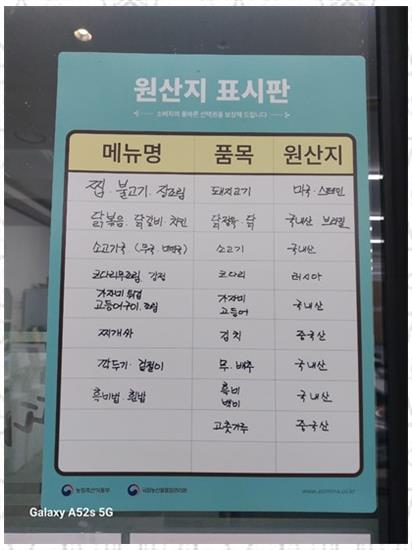 원산지 표시판
소비자의 올바른 선택권을 보장해 드립니다
메뉴명 품목 원산지
찜 · 불고기 · 장조림 돼지고기 미국 · 스페인
닭볶음 · 닭갈비 · 치킨 닭정육 · 닭 국내산 브라질
소고기국 (무국 · 미역국) 소고기 국내산
코다리무조림 강정 코다리 러시아
가자미 튀김 가자미
고등어구이 · 조림 고등어 국내산
찌개와 김치 중국산
깍두기 · 겉절이 무 · 배추 국내산
흑미밥 · 흰밥 흑미 국내산
백미
고춧가루 중국산
농림축산식품부 국립농산물품질관리원
Galaxy A52s 5G